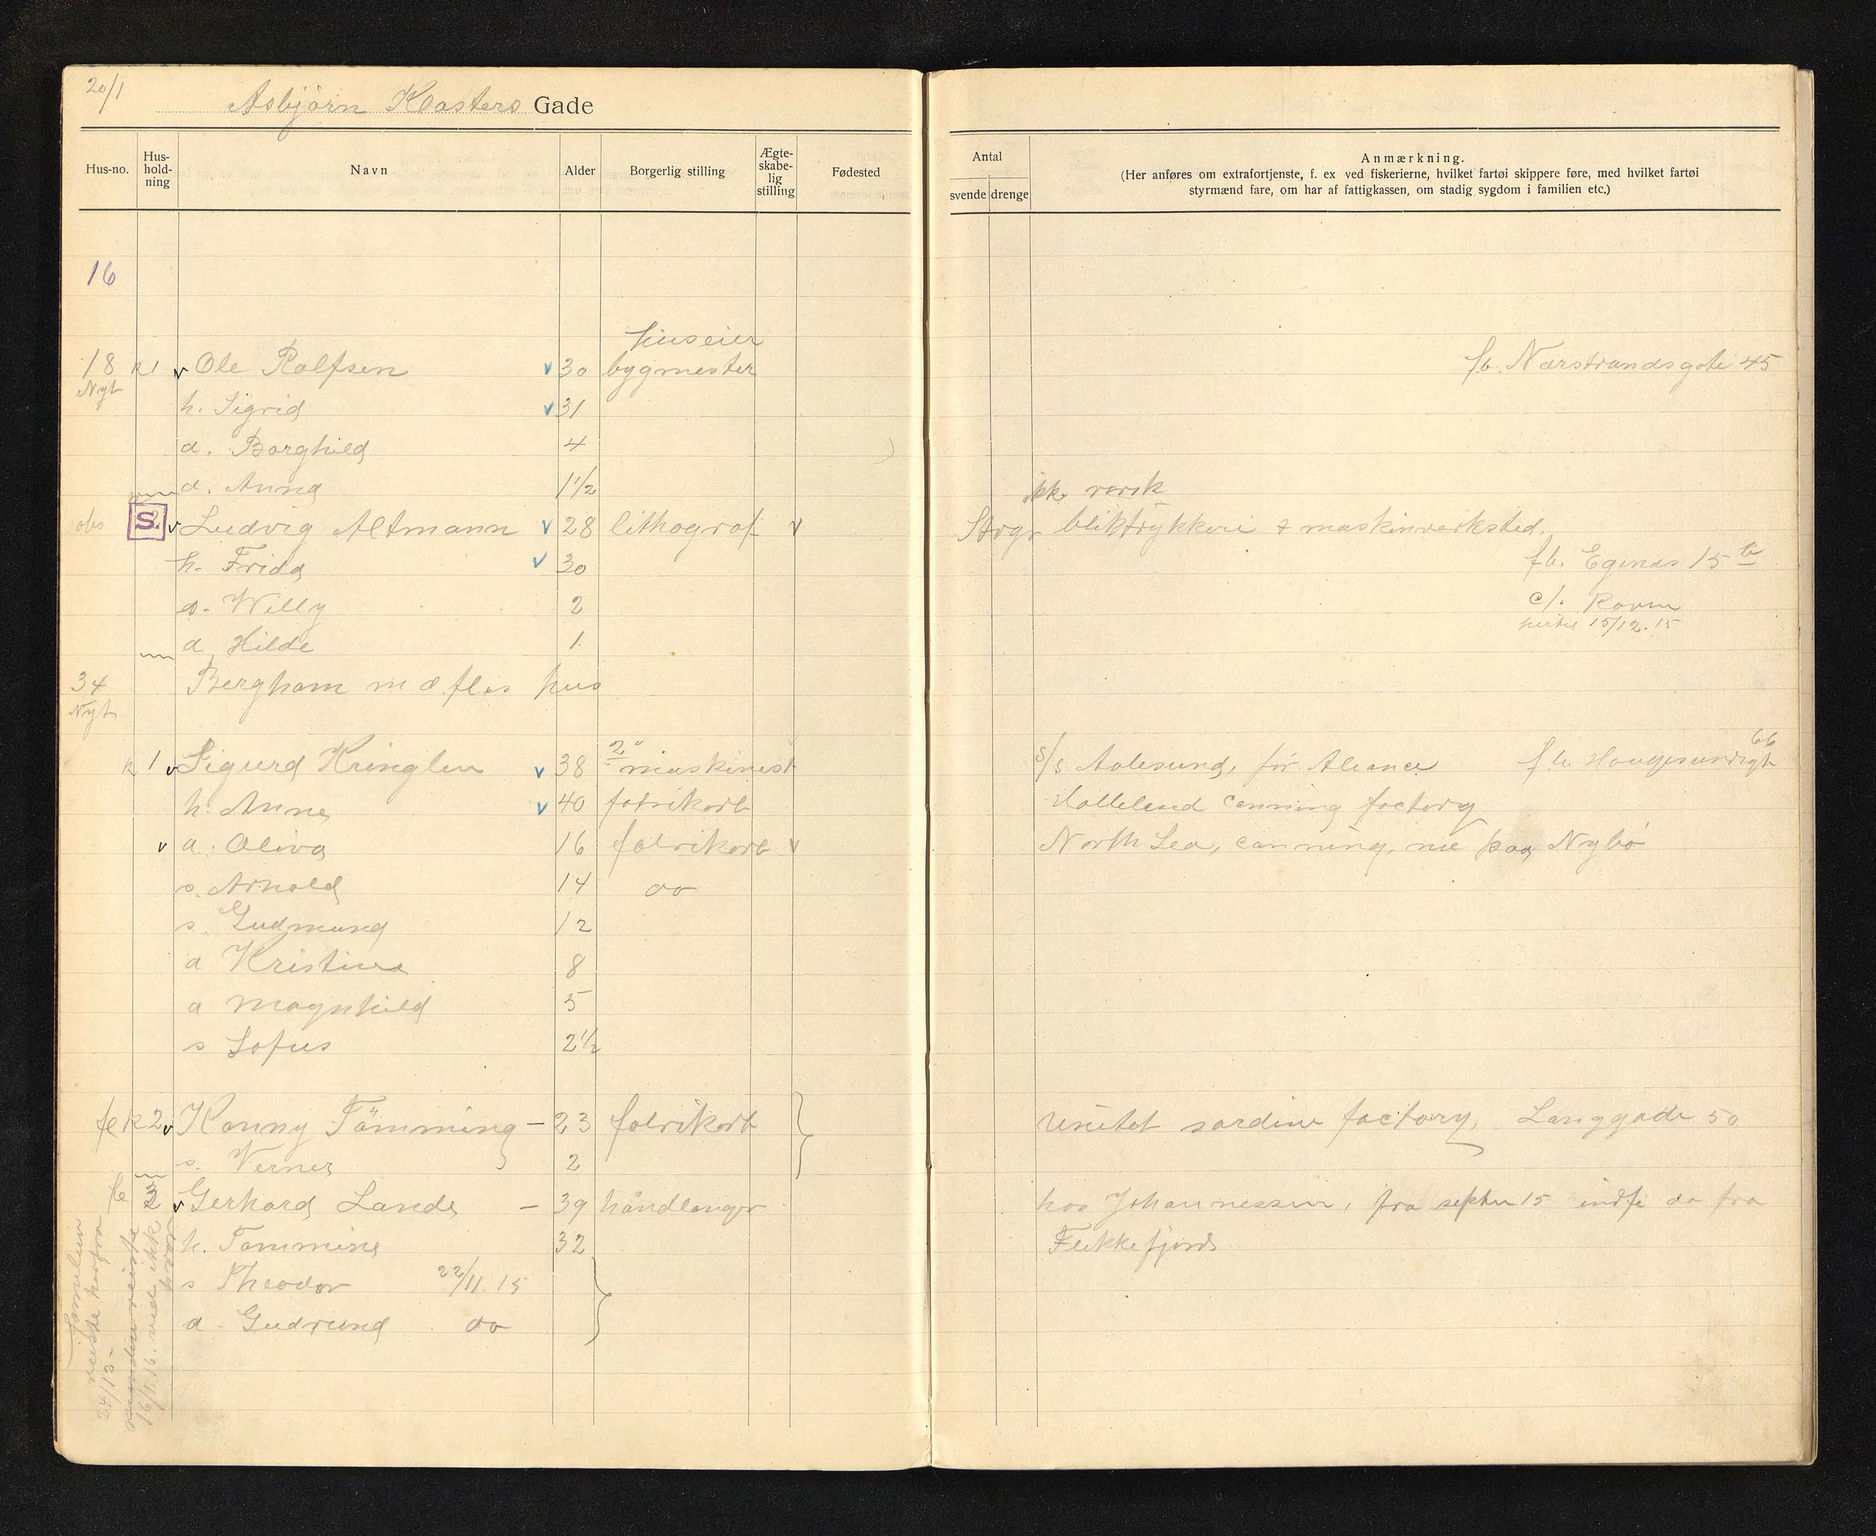 20/1
Asbjörn Klosters Gade
Hus-no.
Hus-hold-ning
Navn
Alder
Borgerlig stilling
Ægte-skabe-lig stilling
Fødested
Antal
svende drenge
Anmærkning.
(Her anføres om extrafortjenste, f. ex ved fiskerierne, hvilket fartøi skippere føre, med hvilket fartøi
styrmænd fare, om har af fattigkassen, om stadig sygdom i familien etc.)
16
huseier
18 k 1 v Ole Rolfsen v 30 bygmester fb. Nærstrandsgate 45
Nyt
h. Sigrid v 31
d. Borghild 4
d. Anna 1 1/2
ikke norsk
obs S. v Ludvig Altmann v 28 lithograf v Stvgr bliktrykkeri & maskinverksted.
h. Frida v 30 fb. Egenes 15 b
s. Willy 2 c/o Ravn
d. Hilde 1 15/12.15
34 Bergham m d. fler hus
Nyt
k 1 v Sigurd Kringlen v 38 2n maskinist s/s Aalesund, før Aliance fb. Haugesundsgt 66
h. Anna v 40 fabrikarb canning factory
v d. Oliva 16 fabrikarb v North Sea, canning, nu paa Nybö
s. Arnold 14 do
s. Gudmund 12
d Kristine 8
d Magnhild 5
s Sofus 2 1/2
k 2 v Konny Tömming – 23 fabrikarb United sardine factory, Langgade 50
s. Verner 2
3 v Gerhard Lande – 39 håndlanger hos Johannessen, fra septbr 15 indf do fra
h. Tommine 32 Flekkefjord
s Theodor 22/11.15
d. Gudrund do
familien
reiste herfra
24/12 –